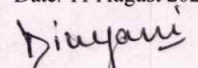 Date: 11 August 202
Divyani